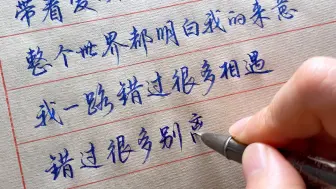 带着爱
整个世界都明白我的来意
我一路错过很多相遇
错过很多别离